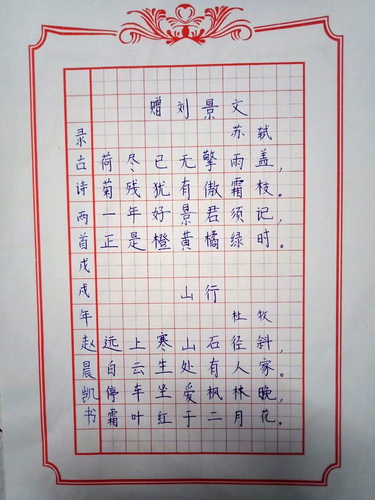 赠刘景文
苏轼
荷尽已无擎雨盖，
菊残犹有傲霜枝。
一年好景君须记，
正是橙黄橘绿时。
山行
杜牧
远上寒山石径斜，
白云生处有人家。
停车坐爱枫林晚，
霜叶红于二月花。
录古诗两首戊戌年赵晨凯书